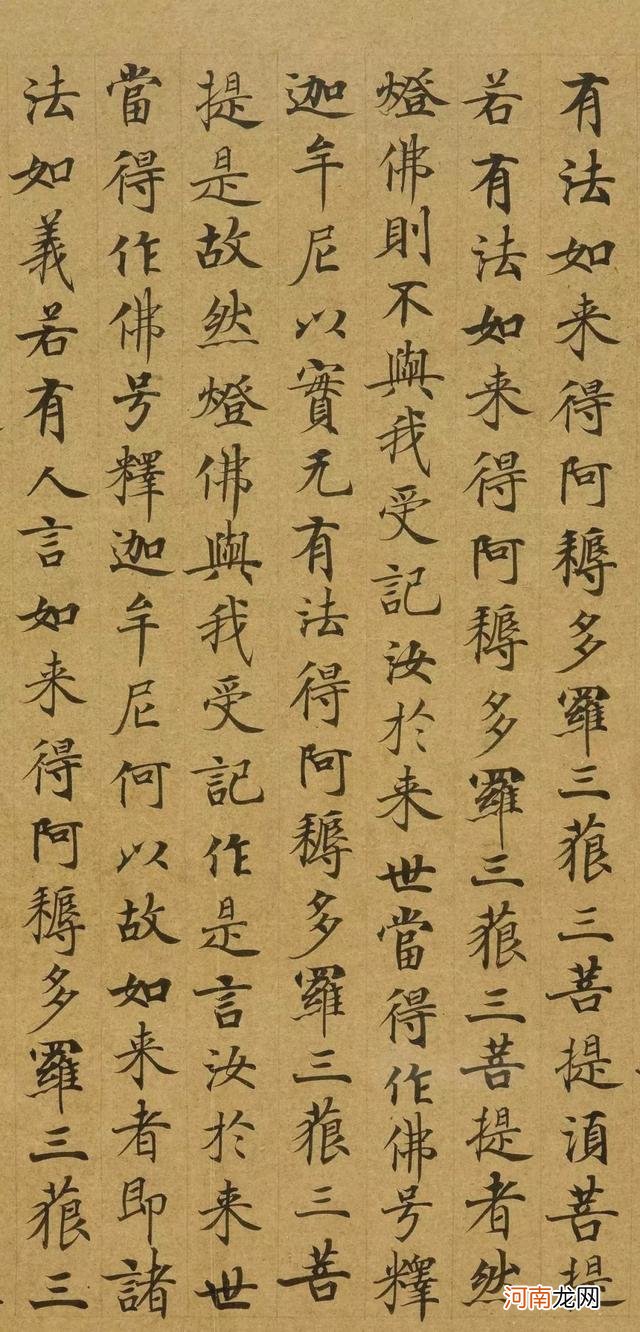 有法如来得阿耨多羅三藐三菩提須菩提
若有法如来得阿耨多羅三藐三菩提者然
燈佛則不與我受記汝於来世當得作佛号釋
迦牟尼以實无有法得阿耨多羅三藐三菩
提是故然燈佛與我受記作是言汝於来世
當得作佛号釋迦牟尼何以故如来者即諸
法如義若有人言如来得阿耨多羅三藐三
河南龙网